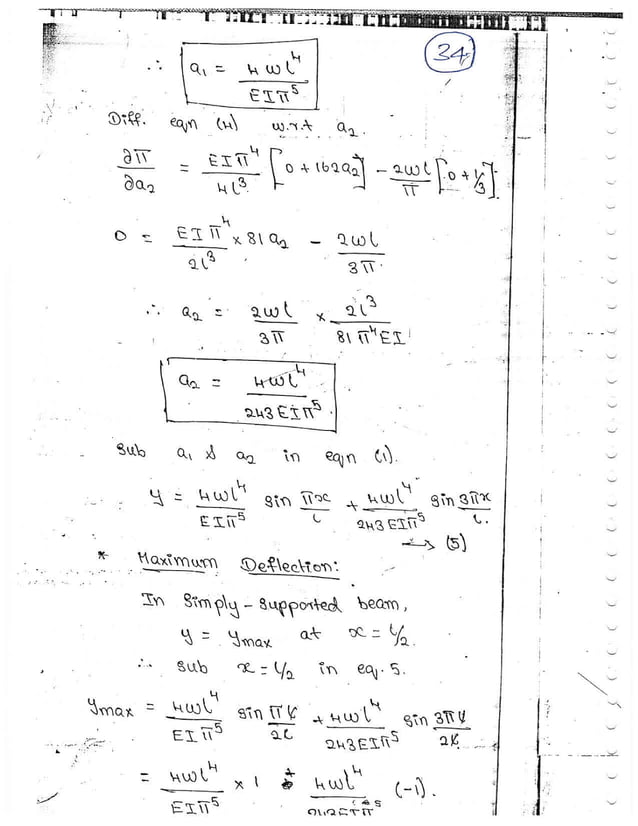 34
∴ a₁ = 4ωl⁴ / EIπ⁵
Diff. eqn (4) w.r.t a₂.
∂π/∂a₂ = EIπ⁴/4l³ [0 + 162a₂] - 2ωl/π [0 + 1/3].
0 = EIπ⁴/2l³ × 81a₂ - 2ωl/3π
∴ a₂ = 2ωl/3π × 2l³/81π⁴EI
a₂ = 4ωl⁴ / 243EIπ⁵
Sub a₁ & a₂ in eqn (1).
y = 4ωl⁴/EIπ⁵ sin πx/l + 4ωl⁴/243EIπ⁵ sin 3πx/l.
→ (5)
* Maximum Deflection:
In Simply-supported beam,
y = ymax at x = l/2.
∴ sub x = l/2 in eq. 5.
ymax = 4ωl⁴/EIπ⁵ sin πl/2l + 4ωl⁴/243EIπ⁵ sin 3πl/2l
= 4ωl⁴/EIπ⁵ × 1 + 4ωl⁴/243EIπ⁵ (-1).